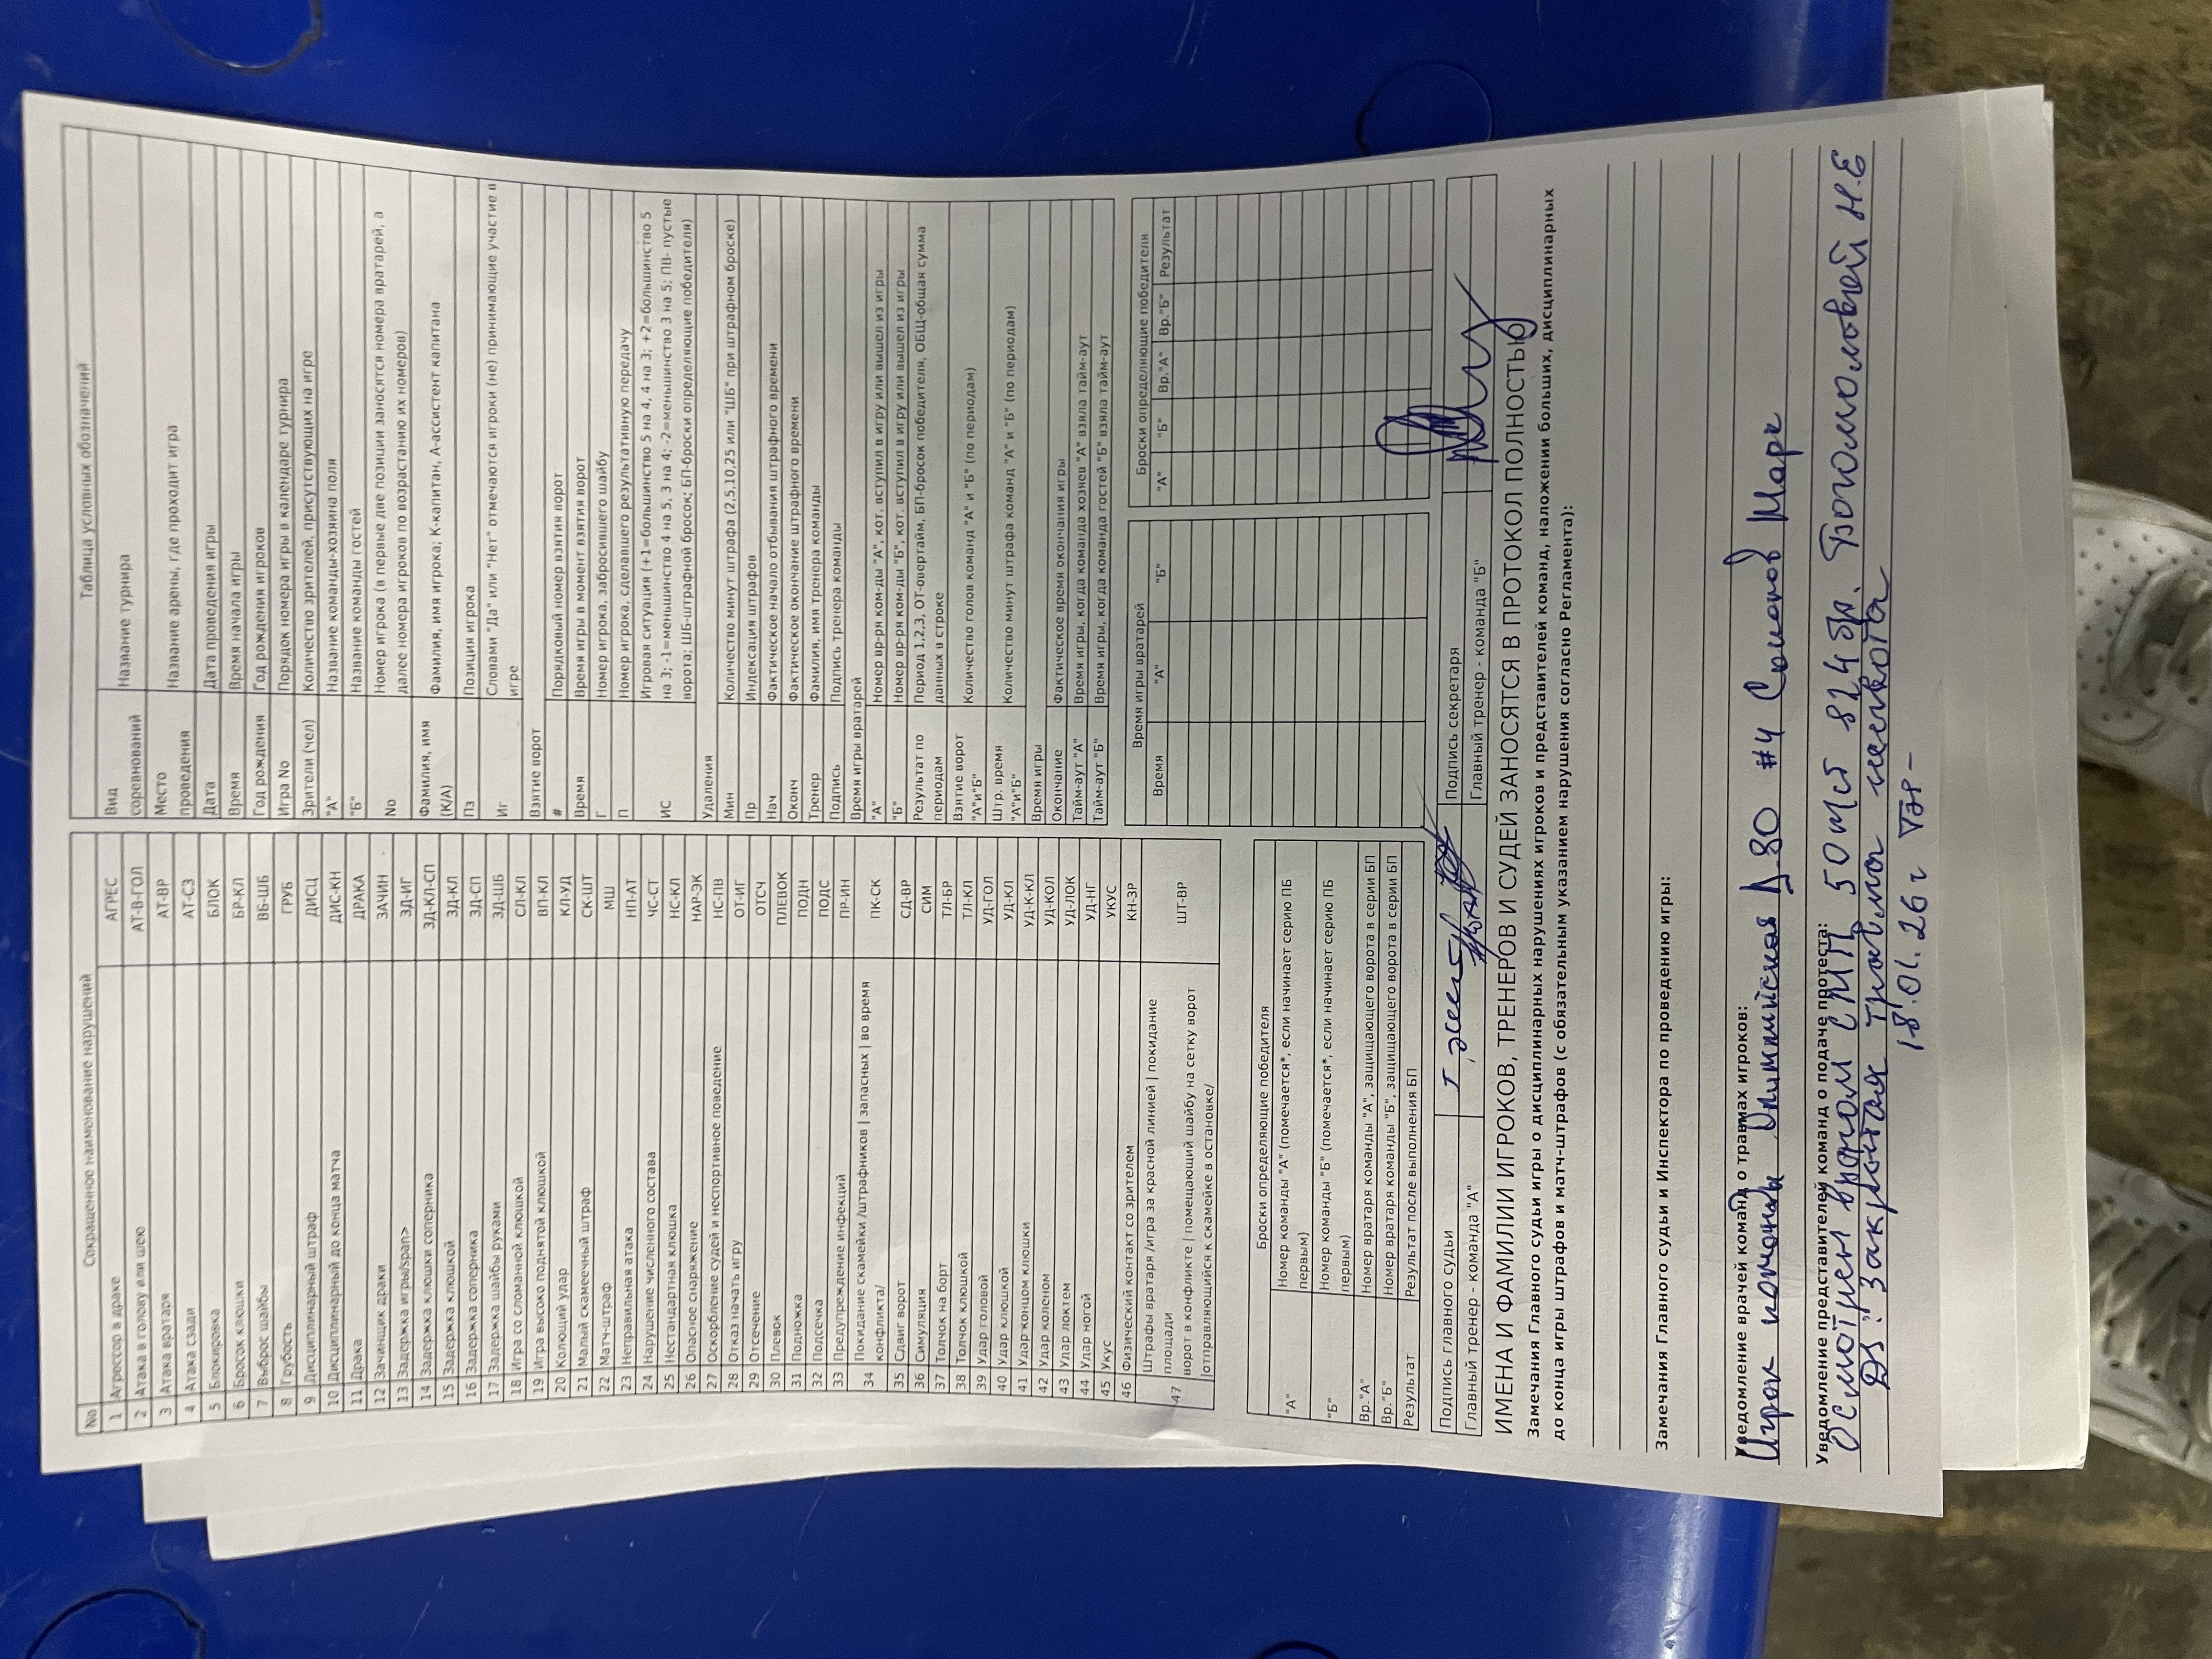 Сокращенное наименование нарушений
No
1 Агрессор в драке АГРЕС
2 Атака в голову или шею АТ-В-ГОЛ
3 Атака вратаря АТ-ВР
4 Атака сзади АТ-СЗ
5 Блокировка БЛОК
6 Бросок клюшки БР-КЛ
7 Выброс шайбы ВБ-ШБ
8 Грубость ГРУБ
9 Дисциплинарный штраф ДИСЦ
10 Дисциплинарный до конца матча ДИС-КН
11 Драка ДРАКА
12 Зачинщик драки ЗАЧИН
13 Задержка игры/span> ЗД-ИГ
14 Задержка клюшки соперника ЗД-КЛ-СП
15 Задержка клюшкой ЗД-КЛ
16 Задержка соперника ЗД-СП
17 Задержка шайбы руками ЗД-ШБ
18 Игра со сломанной клюшкой СЛ-КЛ
19 Игра высоко поднятой клюшкой ВП-КЛ
20 Колющий удар КЛ-УД
21 Малый скамеечный штраф СК-ШТ
22 Матч-штраф МШ
23 Неправильная атака НП-АТ
24 Нарушение численного состава ЧС-СТ
25 Нестандартная клюшка НС-КЛ
26 Опасное снаряжение НАР-ЭК
27 Оскорбление судей и неспортивное поведение НС-ПВ
28 Отказ начать игру ОТ-ИГ
29 Отсечение ОТСЧ
30 Плевок ПЛЕВОК
31 Подножка ПОДН
32 Подсечка ПОДС
33 Предупреждение инфекций ПР-ИН
34 Покидание скамейки /штрафников | запасных | во время
конфликта/ ПК-СК
35 Сдвиг ворот СД-ВР
36 Симуляция СИМ
37 Толчок на борт ТЛ-БР
38 Толчок клюшкой ТЛ-КЛ
39 Удар головой УД-ГОЛ
40 Удар клюшкой УД-КЛ
41 Удар концом клюшки УД-К-КЛ
42 Удар коленом УД-КОЛ
43 Удар локтем УД-ЛОК
44 Удар ногой УД-НГ
45 Укус УКУС
46 Физический контакт со зрителем КН-ЗР
47 Штрафы вратаря /игра за красной линией | покидание
площади
ворот в конфликте | помещающий шайбу на сетку ворот
|отправляющийся к скамейке в остановке/ ШТ-ВР
Таблица условных обозначений
Вид
соревнований Название турнира
Место
проведения Название арены, где проходит игра
Дата Дата проведения игры
Время Время начала игры
Год рождения Год рождения игроков
Игра No Порядок номера игры в календаре турнира
Зрители (чел) Количество зрителей, присутствующих на игре
"А" Название команды-хозяина поля
"Б" Название команды гостей
No Номер игрока (в первые две позиции заносятся номера вратарей, а
далее номера игроков по возрастанию их номеров)
Фамилия, имя
(К/А) Фамилия, имя игрока; К-капитан, А-ассистент капитана
Пз Позиция игрока
Иг Словами "Да" или "Нет" отмечаются игроки (не) принимающие участие в
игре
Взятие ворот
# Порядковый номер взятия ворот
Время Время игры в момент взятия ворот
Г Номер игрока, забросившего шайбу
П Номер игрока, сделавшего результативную передачу
ИС Игровая ситуация (+1=большинство 5 на 4, 4 на 3; +2=большинство 5
на 3; -1=меньшинство 4 на 5, 3 на 4; -2=меньшинство 3 на 5; ПВ- пустые
ворота; ШБ-штрафной бросок; БП-броски определяющие победителя)
Удаления
Мин Количество минут штрафа (2,5,10,25 или "ШБ" при штрафном броске)
Пр Индексация штрафов
Нач Фактическое начало отбывания штрафного времени
Оконч Фактическое окончание штрафного времени
Тренер Фамилия, имя тренера команды
Подпись Подпись тренера команды
Время игры вратарей
"А" Номер вр-ря ком-ды "А", кот. вступил в игру или вышел из игры
"Б" Номер вр-ря ком-ды "Б", кот. вступил в игру или вышел из игры
Результат по
периодам Период 1,2,3, ОТ-овертайм, БП-бросок победителя, ОБЩ-общая сумма
данных в строке
Взятие ворот
"А"и"Б" Количество голов команд "А" и "Б" (по периодам)
Штр. время
"А"и"Б" Количество минут штрафа команд "А" и "Б" (по периодам)
Время игры
Окончание Фактическое время окончания игры
Тайм-аут "А" Время игры, когда команда хозяев "А" взяла тайм-аут
Тайм-аут "Б" Время игры, когда команда гостей "Б" взяла тайм-аут
Броски определяющие победителя
"А" Номер команды "А" (помечается*, если начинает серию ПБ
первым)
"Б" Номер команды "Б" (помечается*, если начинает серию ПБ
первым)
Вр."А" Номер вратаря команды "А", защищающего ворота в серии БП
Вр."Б" Номер вратаря команды "Б", защищающего ворота в серии БП
Результат Результат после выполнения БП
Время игры вратарей
Время "А" "Б"
Броски определяющие победителя
"А" "Б" Вр."А" Вр."Б" Результат
Подпись главного судьи Подпись секретаря
Главный тренер - команда "А" Главный тренер - команда "Б"
ИМЕНА И ФАМИЛИИ ИГРОКОВ, ТРЕНЕРОВ И СУДЕЙ ЗАНОСЯТСЯ В ПРОТОКОЛ ПОЛНОСТЬЮ
Замечания Главного судьи игры о дисциплинарных нарушениях игроков и представителей команд, наложении больших, дисциплинарных
до конца игры штрафов и матч-штрафов (с обязательным указанием нарушения согласно Регламента):
Замечания Главного судьи и Инспектора по проведению игры:
Уведомление врачей команд о травмах игроков:
Игрок команды Олимпийская #4 Симонов Марк
Уведомление представителей команд о подаче протеста:
Осмотрен врачом СМП 50 824 бр. Богомоловой Н.Е
DS: Закрытая травма
18.01.26г